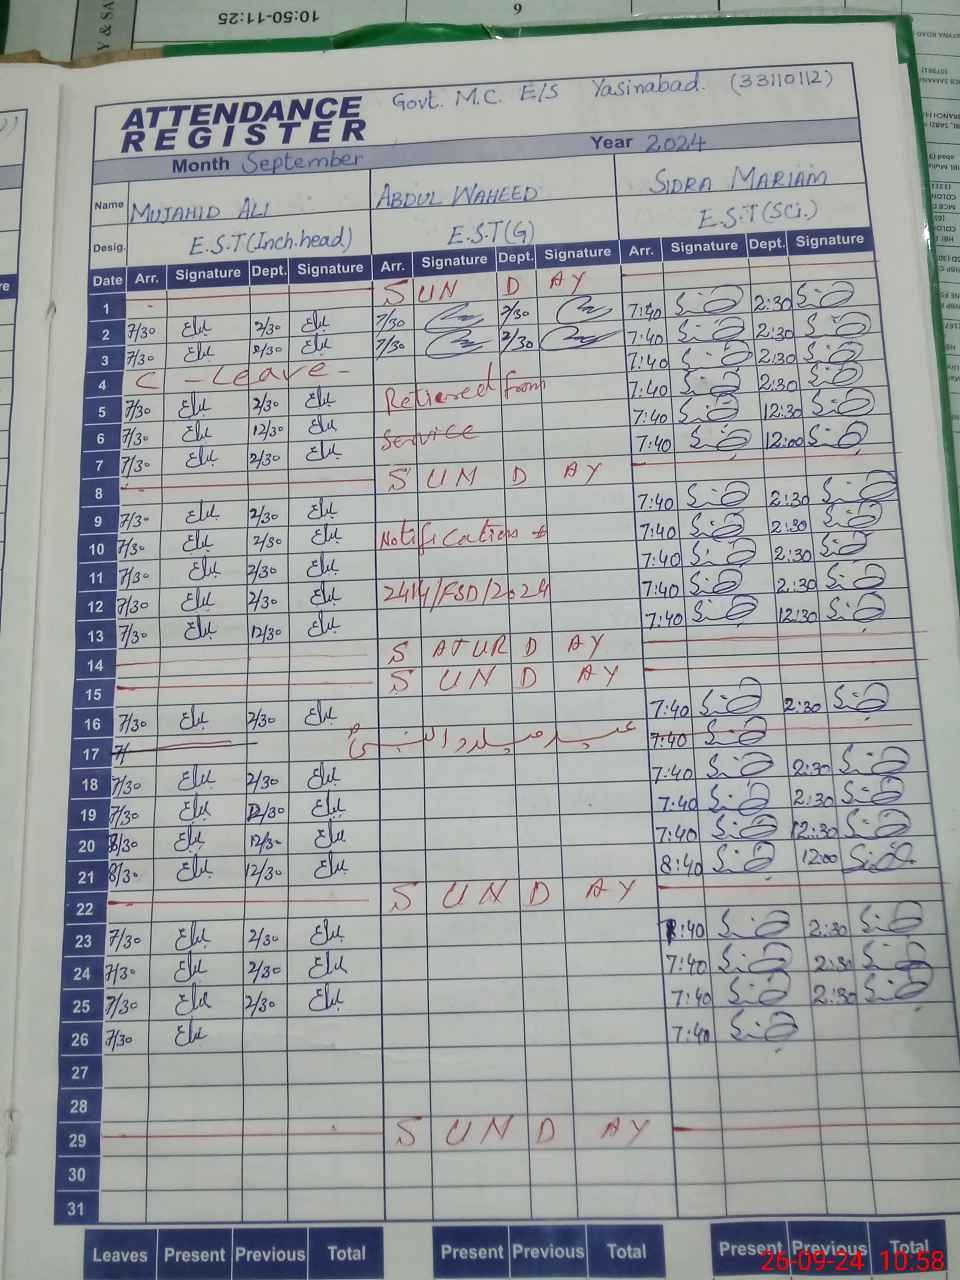 10:50-11:25
6
Y & SA
ATTENDANCE REGISTER
Govt. M.C. E/S Yasinabad. (33110112)
Month September Year 2024
Name MUJAHID ALI ABDUL WAHEED SIDRA MARIAM
Desig. E.S.T(Inch.head) E.S.T(G) E.S.T(SCi.)
Date Arr. Signature Dept. Signature Arr. Signature Dept. Signature Arr. Signature Dept. Signature
1 SUNDAY
2 7/30 2/30 7/30 2/30 7:40 2:30
3 7/30 2/30 7/30 2/30 7:40 2:30
4 C - Leave - 7:40 2:30
5 7/30 2/30 Retiered from 7:40 2:30
6 7/30 12/30 Service 7:40 12:30
7 7/30 2/30 7:40 12:00
8 SUNDAY
9 7/30 2/30 7:40 2:30
10 7/30 2/30 Notification # 7:40 2:30
11 7/30 2/30 7:40 2:30
12 7/30 2/30 2414/FSD/2024 7:40 2:30
13 7/30 12/30 7:40 12:30
14 SATURDAY
15 SUNDAY
16 7/30 2/30 7:40 2:30
17 7/ عید میلاد النبیؐ 7:40
18 7/30 2/30 7:40 2:30
19 7/30 12/30 7:40 2:30
20 8/30 12/30 7:40 12:30
21 8/30 12/30 8:40 12:00
22 SUNDAY
23 7/30 2/30 8:40 2:30
24 7/30 2/30 7:40 2:30
25 7/30 2/30 7:40 2:30
26 7/30 7:40
27
28
29 SUNDAY
30
31
Leaves Present Previous Total Present Previous Total Present Previous Total
26-09-24 10:58